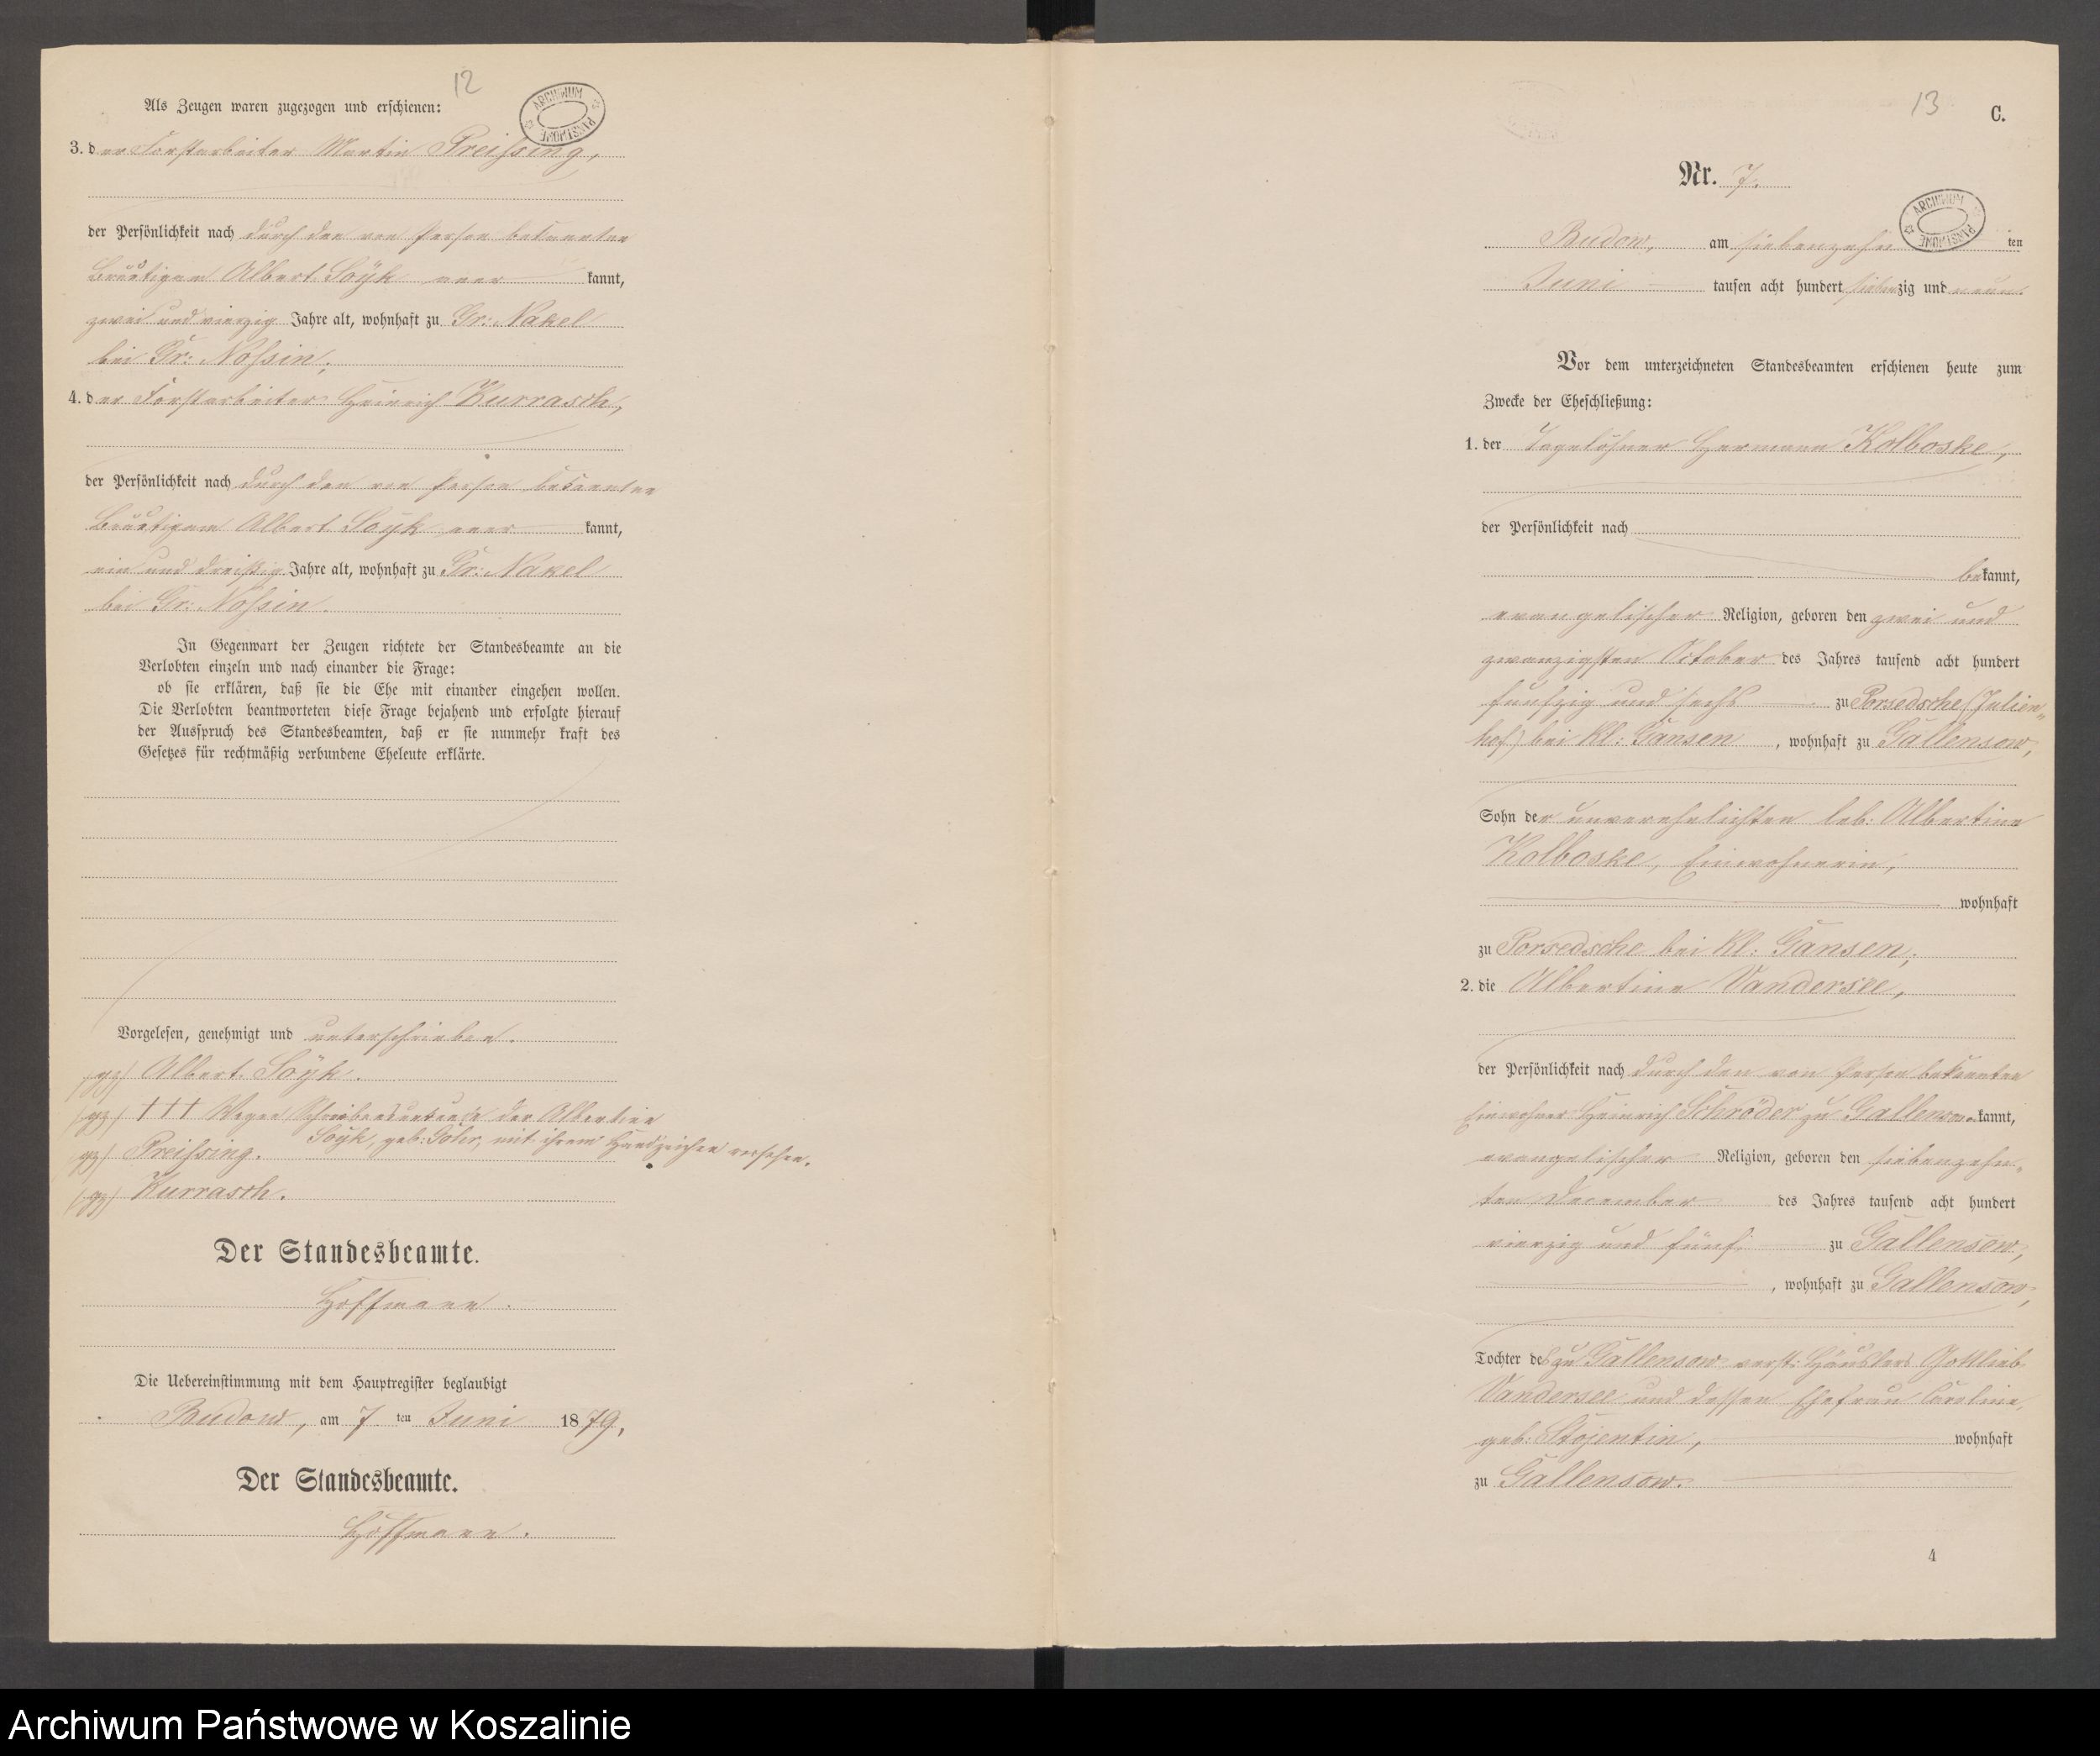 12
Als Zeugen waren zugezogen und erschienen:
ARCHIWUM PAŃSTWOWE
3. der Forstarbeiter Martin Preißing,
der Persönlichkeit nach durch den von Person bekannten
Bräutigam Albert Soÿk aner kannt,
zwei und vierzig Jahre alt, wohnhaft zu Gr: Nakel
bei Gr: Noßin,
4. der Forstarbeiter Heinrich Kurrasch,
der Persönlichkeit nach durch den von Person bekannten
Bräutigam Albert Soÿk aner kannt,
ein und dreißig Jahre alt, wohnhaft zu Gr: Nakel
bei Gr: Noßin.
In Gegenwart der Zeugen richtete der Standesbeamte an die
Verlobten einzeln und nach einander die Frage:
ob sie erklären, daß sie die Ehe mit einander eingehen wollen.
Die Verlobten beantworteten diese Frage bejahend und erfolgte hierauf
der Ausspruch des Standesbeamten, daß er sie nunmehr kraft des
Gesetzes für rechtmäßig verbundene Eheleute erklärte.
Vorgelesen, genehmigt und unterschrieben.
(gz) Albert Soÿk.
(gz) ††† Wegen Schreibensunkunde der Albertine
Soÿk, geb: Göhr, mit ihrem Handzeichen versehen.
(gz) Preißing.
(gz) Kurrasch.
Der Standesbeamte.
Hoffmann.
Die Uebereinstimmung mit dem Hauptregister beglaubigt
Budow, am 7 ten Juni 1879,
Der Standesbeamte.
Hoffmann.
13
C.
Nr. 7.
ARCHIWUM PAŃSTWOWE
Budow, am siebenzehn ten
Juni tausen acht hundert siebenzig und neun.
Vor dem unterzeichneten Standesbeamten erschienen heute zum
Zwecke der Eheschließung:
1. der Tagelöhner Hermann Kolboske,
der Persönlichkeit nach
bekannt,
evangelischer Religion, geboren den zwei und
zwanzigsten October des Jahres tausend acht hundert
fünfzig und sechs zu Porsedsche (Julien„
hof) bei Kl: Gansen, wohnhaft zu Gallensow,
Sohn der unverehelichten leb: Albertine
Kolboske, Einwohnerin,
wohnhaft
zu Porsedsche bei Kl: Gansen,
2. die Albertine Vandersee,
der Persönlichkeit nach durch den von Person bekannten
Einwohner Heinrich Schröder zu Gallensow kannt,
evangelischer Religion, geboren den siebenzehn„
ten December des Jahres tausend acht hundert
vierzig und fünf zu Gallensow,
, wohnhaft zu Gallensow,
Tochter des zu Gallensow verst: Häuslers Gottlieb
Vandersee und dessen Ehefrau Caroline,
geb: Stojentin, wohnhaft
zu Gallensow.
4
Archiwum Państwowe w Koszalinie